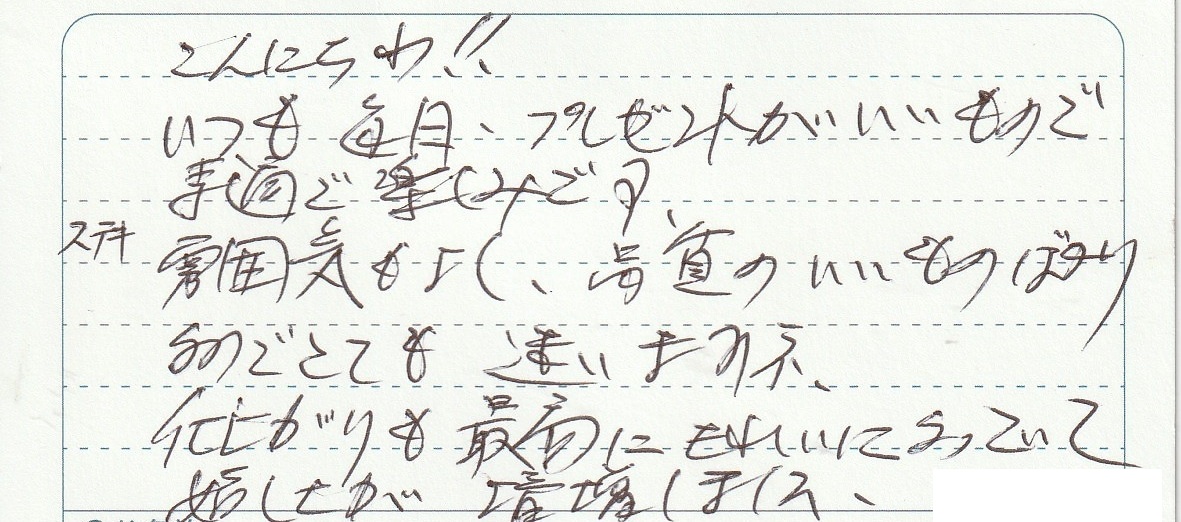 こんにちわ!!
いつも毎月、プレゼントがいいもので
素適で楽しみです、
ステキ
雰囲気もよく、品質のいいものばかり
なのでとても迷いますネ、
仕上がりも最高にきれいになっていて
嬉しさが倍増しまくス、